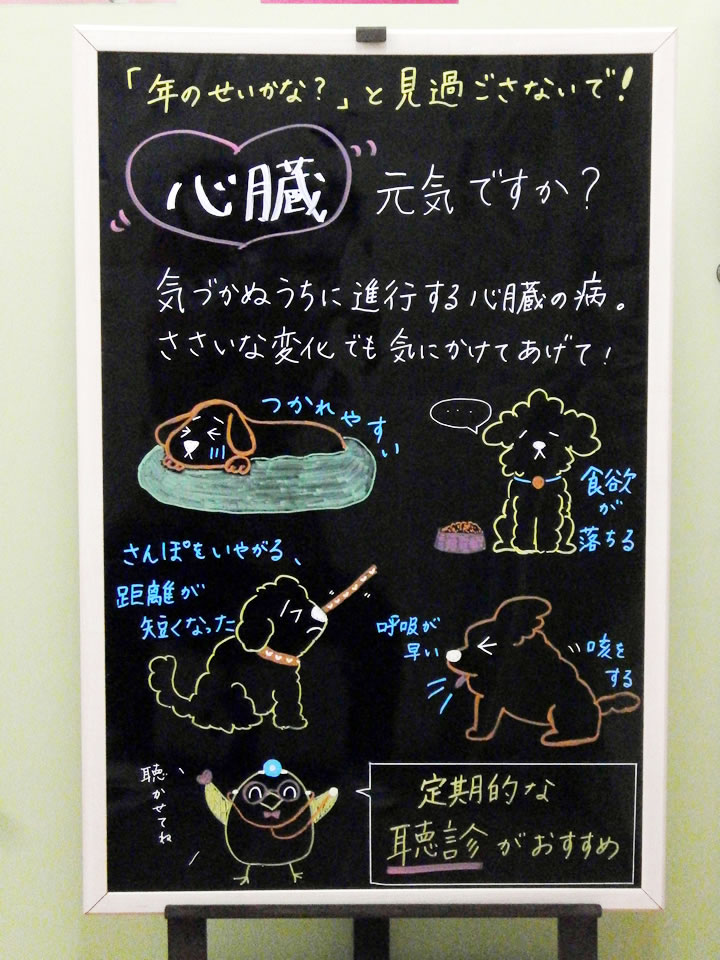 「年のせいかな?」と見過ごさないで!
心臓 元気ですか?
気づかぬうちに進行する心臓の病。
ささいな変化でも気にかけてあげて!
つかれやすい
····
食欲
が
落ちる
さんぽをいやがる、
距離が
短くなった
呼吸が
早い
咳を
する
聴かせてね
定期的な
聴診がおすすめ